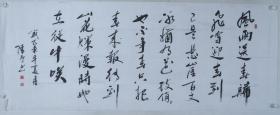 風雨送春歸
飛雪迎春到
已是懸崖百丈
冰猶有花枝俏
俏也不爭春只把
春來報待到
山花爛漫時她
在叢中笑
年夏月